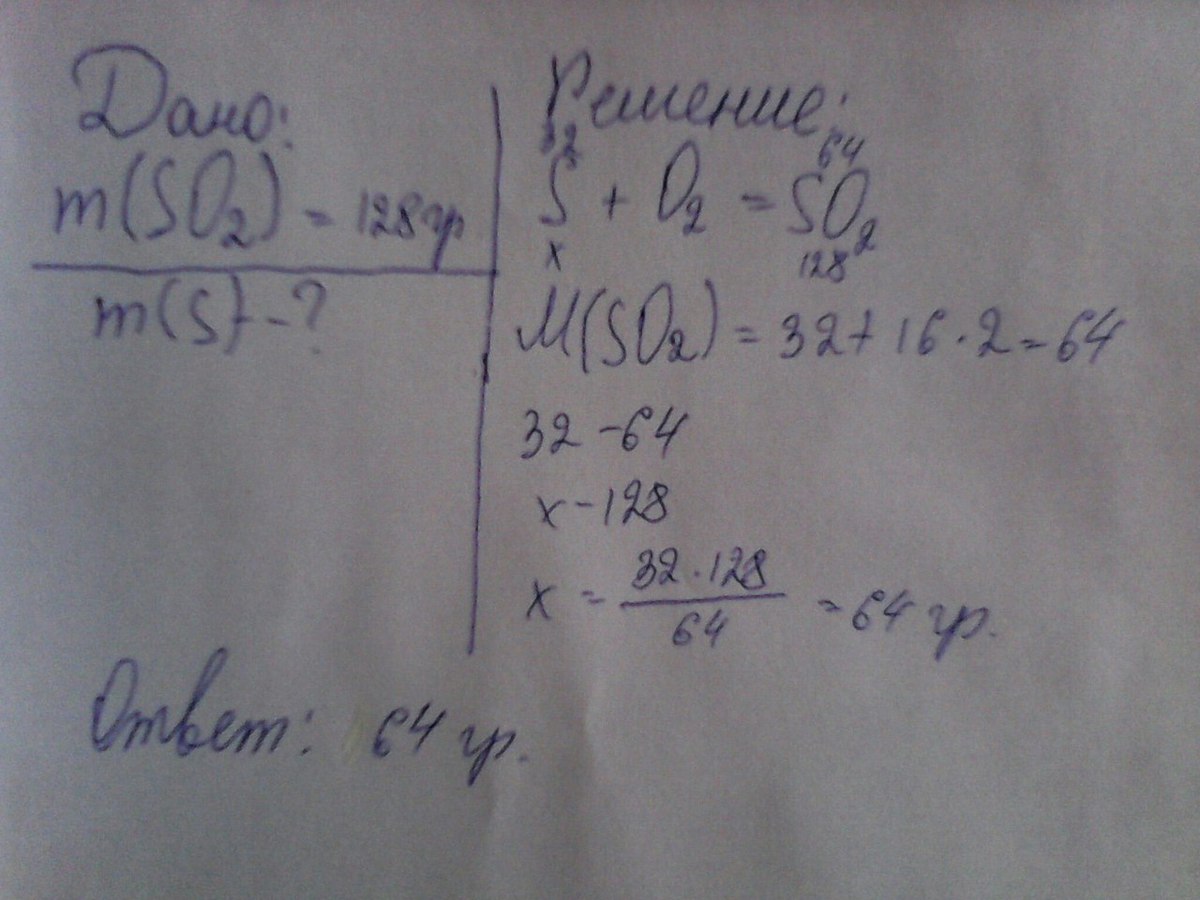 Дано:
m(SO₂) = 128 гр
m(S) - ?
Решение:
32 64
S + O₂ = SO₂
x 128
M(SO₂) = 32 + 16 · 2 = 64
32 - 64
x - 128
x = 32 · 128 / 64 = 64 гр.
Ответ: 64 гр.